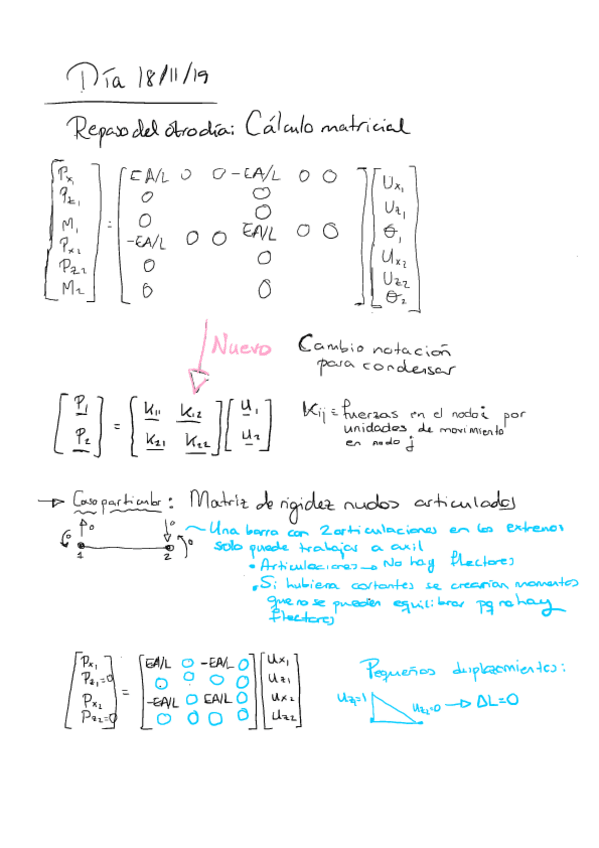 Día 18/11/19
Repaso del otro día: Cálculo matricial
Px1 EA/L 0 0 -EA/L 0 0 Ux1
Pz1 0 0 Uz1
M1 = 0 0 θ1
Px2 -EA/L 0 0 EA/L 0 0 Ux2
Pz2 0 0 Uz2
M2 0 0 θ2
Nuevo
Cambio notación
para condensar
P1 = K11 K12 u1
P2 K21 K22 u2
Kij = fuerzas en el nodo i por
unidades de movimiento
en nodo j
→ Caso particular: Matriz de rigidez nudos articulados
0 0 0 0
1 2
~ Una barra con 2 articulaciones en los extremos
solo puede trabajar a axil
• Articulaciones → No hay flectores
• Si hubiera cortantes se crearían momentos
que no se pueden equilibrar pq no hay
flectores
Px1 EA/L 0 -EA/L 0 Ux1
Pz1=0 = 0 0 0 0 Uz1
Px2 -EA/L 0 EA/L 0 Ux2
Pz2=0 0 0 0 0 Uz2
Pequeños desplazamientos:
Uz1=1 Uz1=0 → ΔL=0